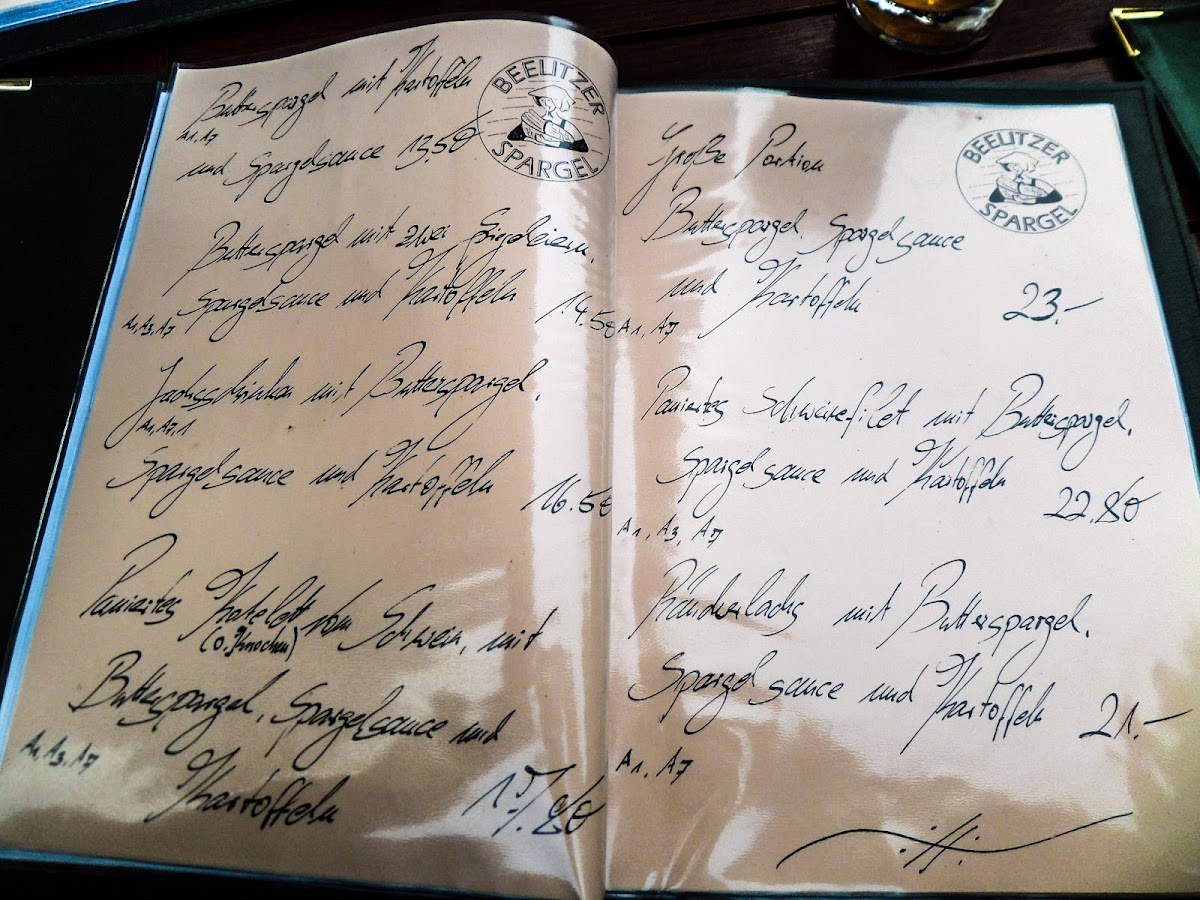 BEELITZER
SPARGEL
Butterspargel mit Kartoffeln
A1, A7
und Spargelsauce 13.50
Butterspargel mit zwei Spiegeleiern,
Spargelsauce und Kartoffeln 14.50
A1, A3, A7
mit Butterspargel,
A1, A7, 1
Spargelsauce und Kartoffeln 16.50
Paniertes Kotelett vom Schwein, mit
(o. Knochen)
Butterspargel, Spargelsauce und
A1, A3, A7
Kartoffeln
BEELITZER
SPARGEL
Große Portion
Butterspargel, Spargelsauce
und Kartoffeln 23.-
A1, A7
Paniertes Schweinefilet mit Butterspargel,
Spargelsauce und Kartoffeln 22.80
A1, A3, A7
Räucherlachs mit Butterspargel,
Spargelsauce und Kartoffeln 21.-
A1, A7